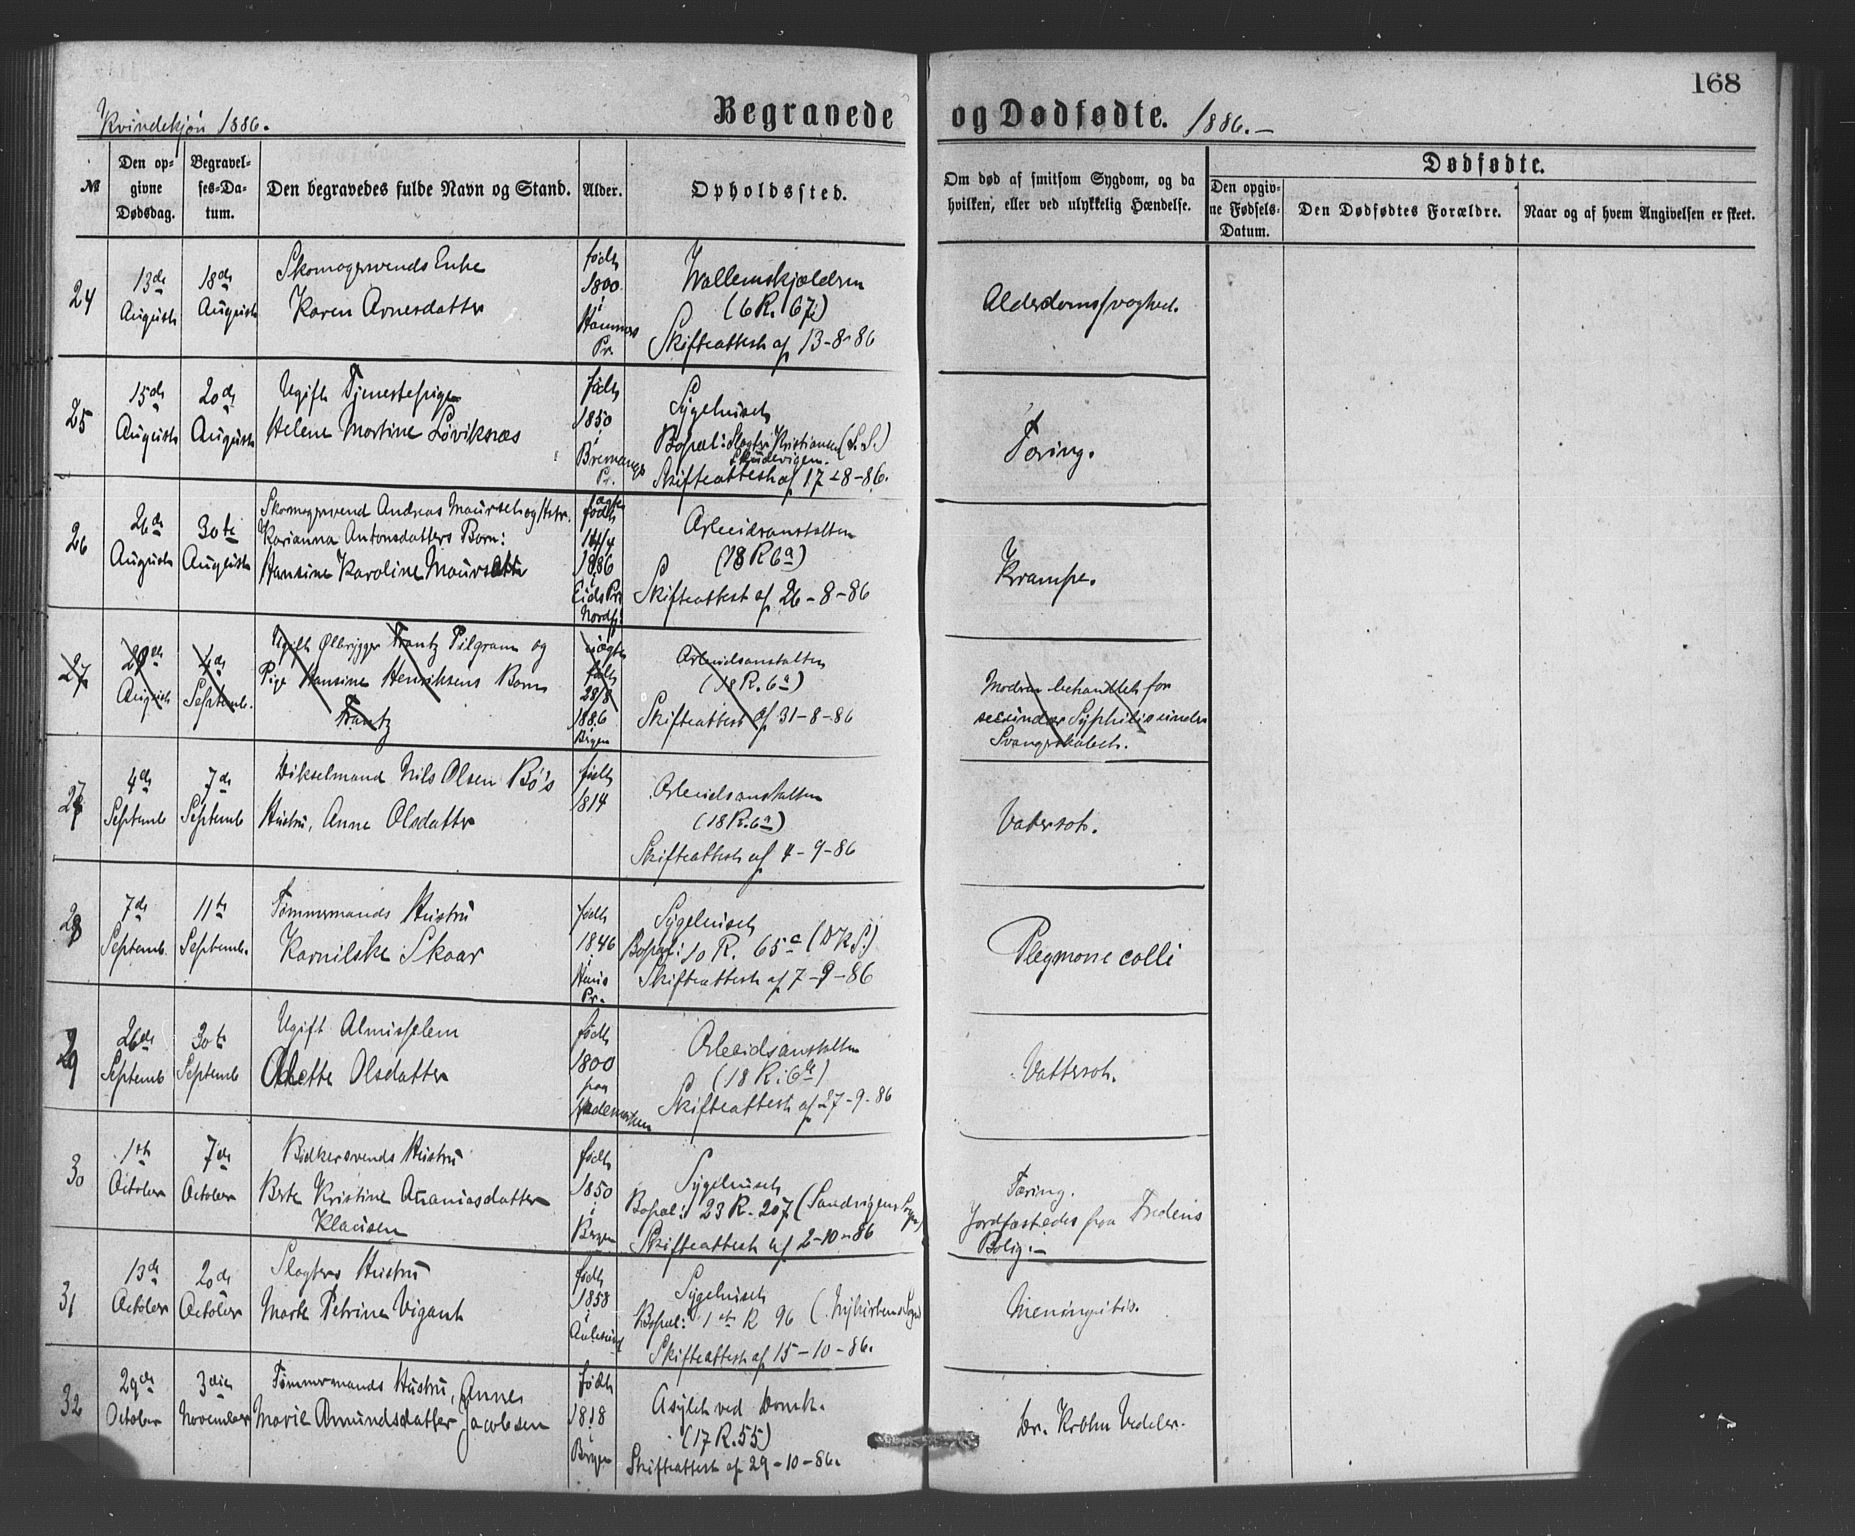 168
Kvindekjøn 1886.
Begravede og Dødfødte. 1886.
№
Den opgivne Dødsdag.
Begravelses-Datum.
Den begravedes fulde Navn og Stand.
Alder.
Opholdssted.
Om død af smitsom Sygdom, og da
hvilken, eller ved ulykkelig Hændelse.
Dødfødte.
Den opgivne Fødsels-Datum.
Den Dødfødtes Forældre.
Naar og af hvem Angivelsen er skeet.
24
13de August
18de August
Skomagersvends Enke
Karen Arnesdatter
født 1800 i Pr.
(6 R. 67)
Skifteattest af 13-8-86
Alderdomssvaghed.
25
15de August
20de August
Ugift Tjenestepige
Helene Martine Løviksnæs
født 1850 i Bremanger Pr.
Sygehuset
Bopæl: Slagter Kristiansen
Skudevigen.
Skifteattest af 17-8-86.
Tæring.
26
26de August
30te August
Skomagersvend Andreas Maurset og Hstr.
Karianna Antonsdatters Barn:
Hansine Karoline Maursett
ægte født 14/4 1886 i Eids Pr. Nordfj.
Arbeidsanstalten
(18 R 6a)
Skifteattest af 26-8-86
Krampe.
27
29de August
4de Septemb.
Ugift Ølbrygger Frantz Pilgram og
Pige Hansine Henriksens Barn
Frantz
uægte født 28/8 1886 Bergen
Arbeidsanstalten
(18 R. 6a)
Skifteattest af 31-8-86
Modren behandlet for
secundær Syphilis under
Svangerskabet.
27
4de Septemb
7de Septemb
Nils Olsen Bø's
Hustru, Anne Olsdatter
født 1814
Arbeidsanstalten
(18 R. 6a)
Skifteattest af 4-9-86
Vatersot.
28
7de Septemb.
11te Septemb.
Tømmermands Hustru
Kornilske Skaar
født 1846 i Pr.
Sygehuset
Bopæl: 10 R. 65c (D.K.S.)
Skifteattest af 7-9-86
Plegmone colli
29
26de Septemb
30te Septemb
Ugift Almisselem
Olsdatter
født 1800 paa
Arbeidsanstalten
(18 R. 6a)
Skifteattest af 27-9-86
Vattersot.
30
1ste October
7de October
Bødkersvends Hustru
Berte Kristine Ananiasdatter
Klausen
født 1850 i Bergen
Sygehuset
Bopæl: 23 R. 207 (Sandvigens Sogn)
Skifteattest af 2-10-86
Tæring.
Jordfæstedes fra Fredens
Bolig.
31
13de October
20de October
Slagters Hustru
Marte Petrine Vigant
født 1858 i Aalesund
Sygehuset
Bopæl: 1ste R 96 (Nykirkens Sogn)
Skifteattest af 15-10-86.
Meningitis.
32
29de October
3die November
Tømmermands Hustru, Anne
Marie Amundsdatter Jacobsen
født 1818 i Bergen
Asylet ved Domk.
(17 R. 55)
Skifteattest af 29-10-86.
Dr. Krohn Vedeler.